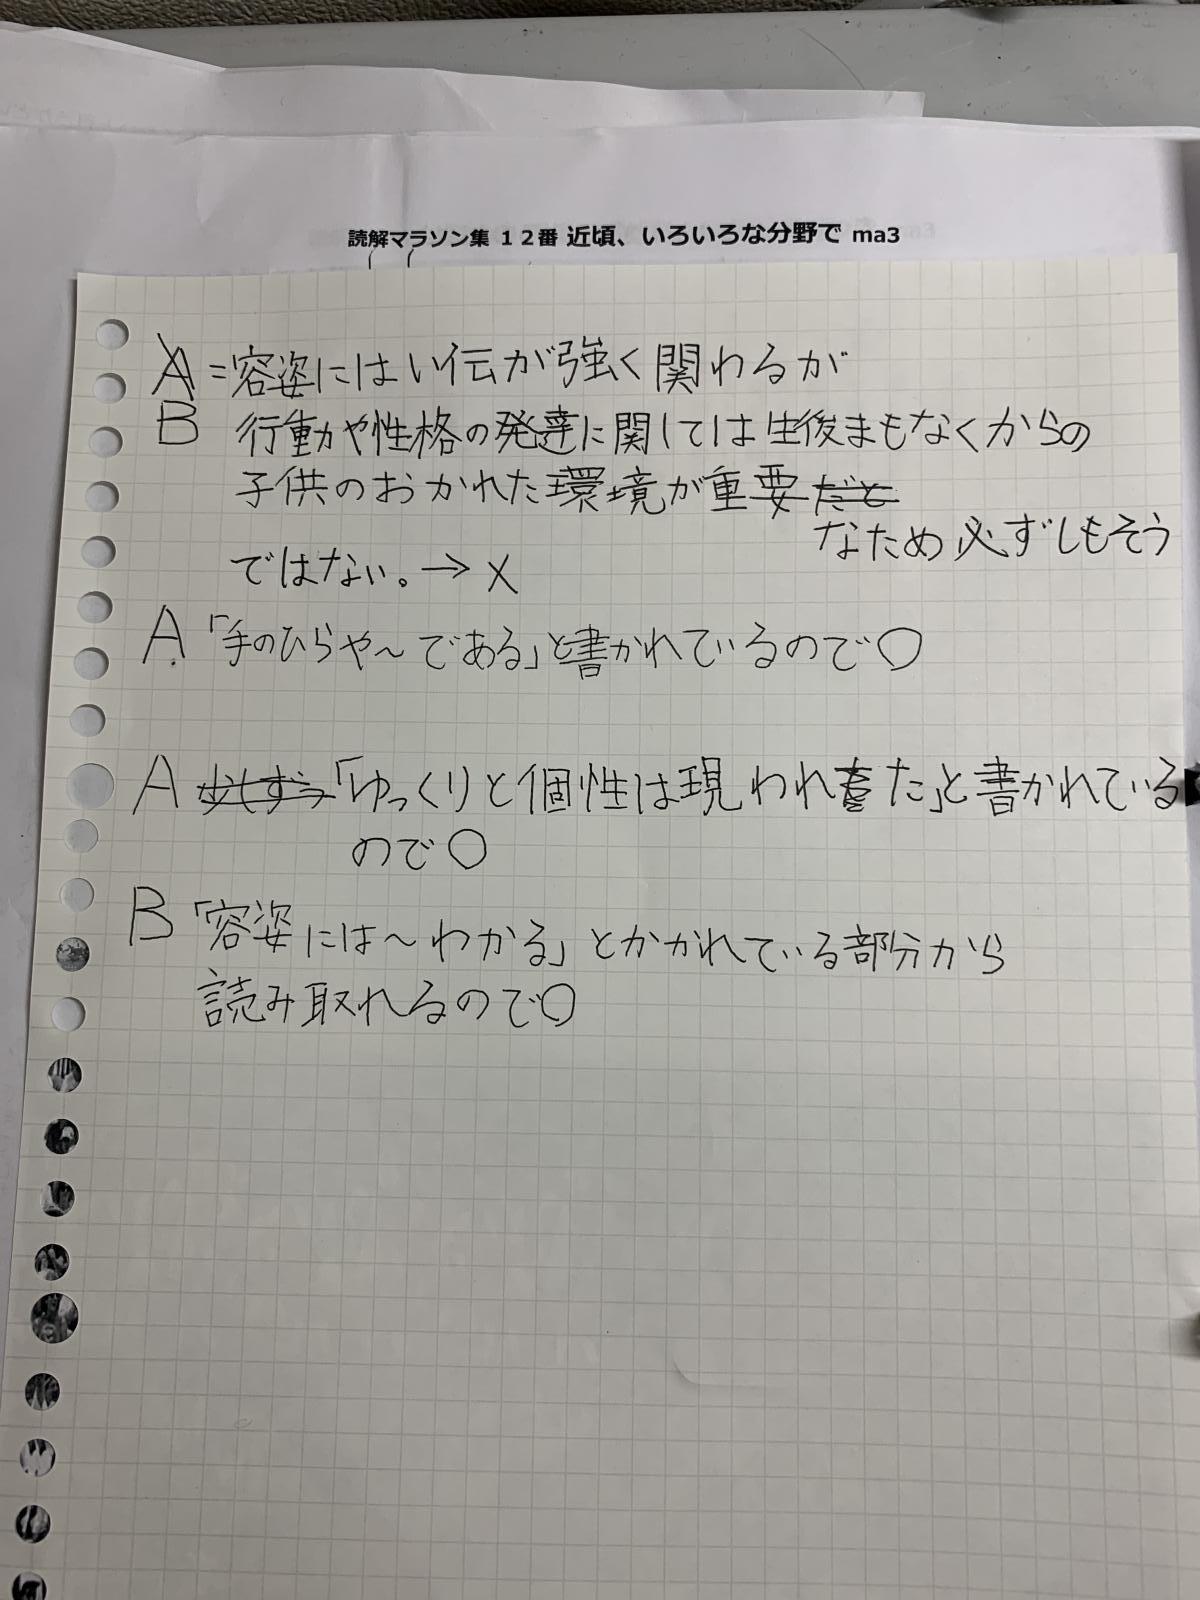 読解マラソン集 12番 近頃、いろいろな分野で ma3
A=容姿にはい伝が強く関わるが
B 行動や性格の発達に関しては生後まもなくからの
子供のおかれた環境が重要だと
なため必ずしもそう
ではない。→×
A「手のひらや〜である」と書かれているので○
A 少しずつ「ゆっくりと個性は現われた」と書かれている
ので○
B「容姿には〜わかる」とかかれている部分から
読み取れるので○